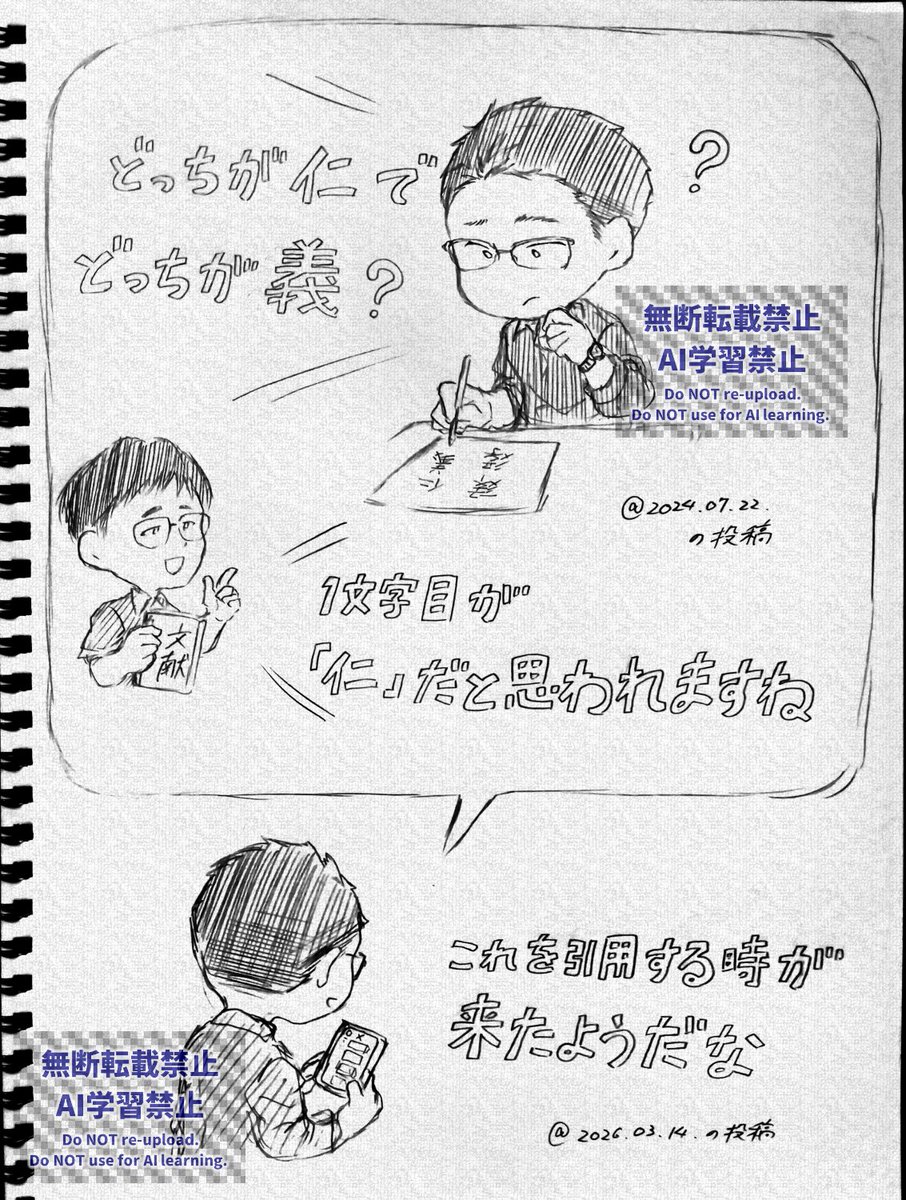 どっちが仁で
どっちが義?
?
無断転載禁止
AI学習禁止
Do NOT re-upload.
Do NOT use for AI learning.
仁義
@2024.07.22.
の投稿
文献
1文字目が
「仁」だと思われますね
これを引用する時が
来たようだな
@2026.03.14.の投稿
無断転載禁止
AI学習禁止
Do NOT re-upload.
Do NOT use for AI learning.